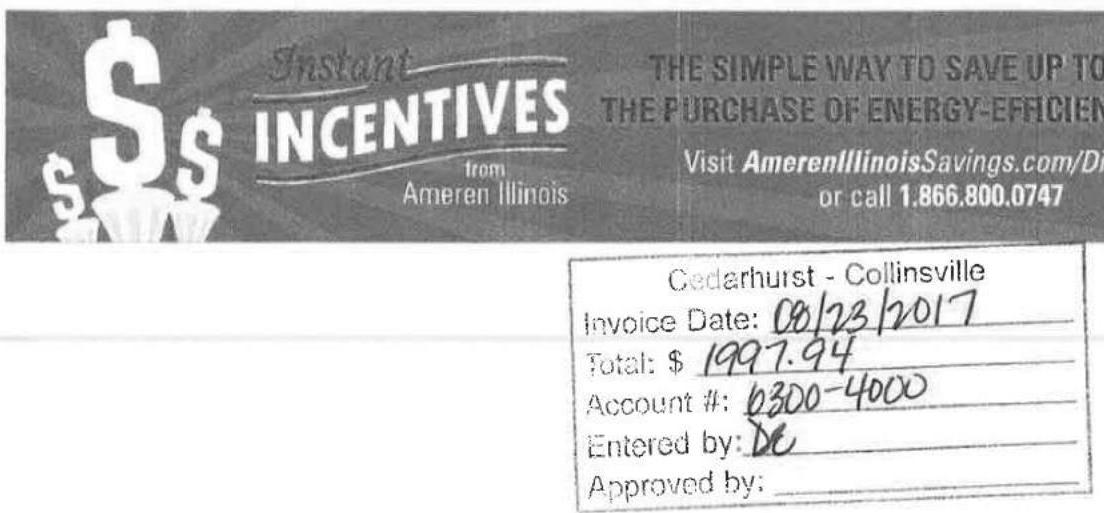 Instant
INCENTIVES
from
Ameren Illinois
THE SIMPLE WAY TO SAVE UP TO
THE PURCHASE OF ENERGY-EFFICIEN
Visit AmerenIllinoisSavings.com/Di
or call 1.866.800.0747
Cedarhurst - Collinsville
Invoice Date: 08/23/2017
Total: $ 1997.94
Account #: 6300-4000
Entered by: DC
Approved by: